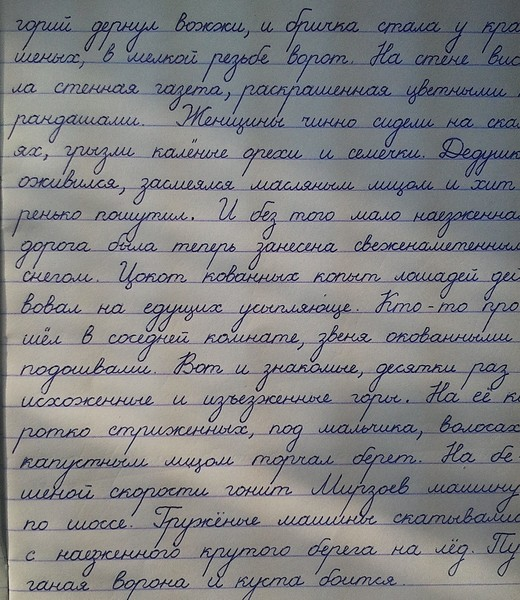 горий дернул вожжи, и бричка стала у кра
шеных, в мелкой резьбе ворот. На стене вис
ла стенная газета, раскрашенная цветными
рандашами. Женщины чинно сидели на ска
ях, грызли калёные орехи и семечки. Дедушк
оживился, засмеялся масляным лицом и хит
ренько пошутил. И без того мало наезженна
дорога была теперь занесена свеженаметенным
снегом. Цокот кованных копыт лошадей дей
вовал на едущих усыпляюще. Кто-то про
шёл в соседней комнате, звеня окованными
подошвами. Вот и знакомые, десятки раз
исхоженные и изъезженные горы. На её к
ротко стриженных, под мальчика, волосах
капустным лицом торчал берет. На бе-
шеной скорости гонит Мирзоев машину
по шоссе. Гружёные машины скатывались
с наезженного крутого берега на лёд. Пу
ганая ворона и куста боится.